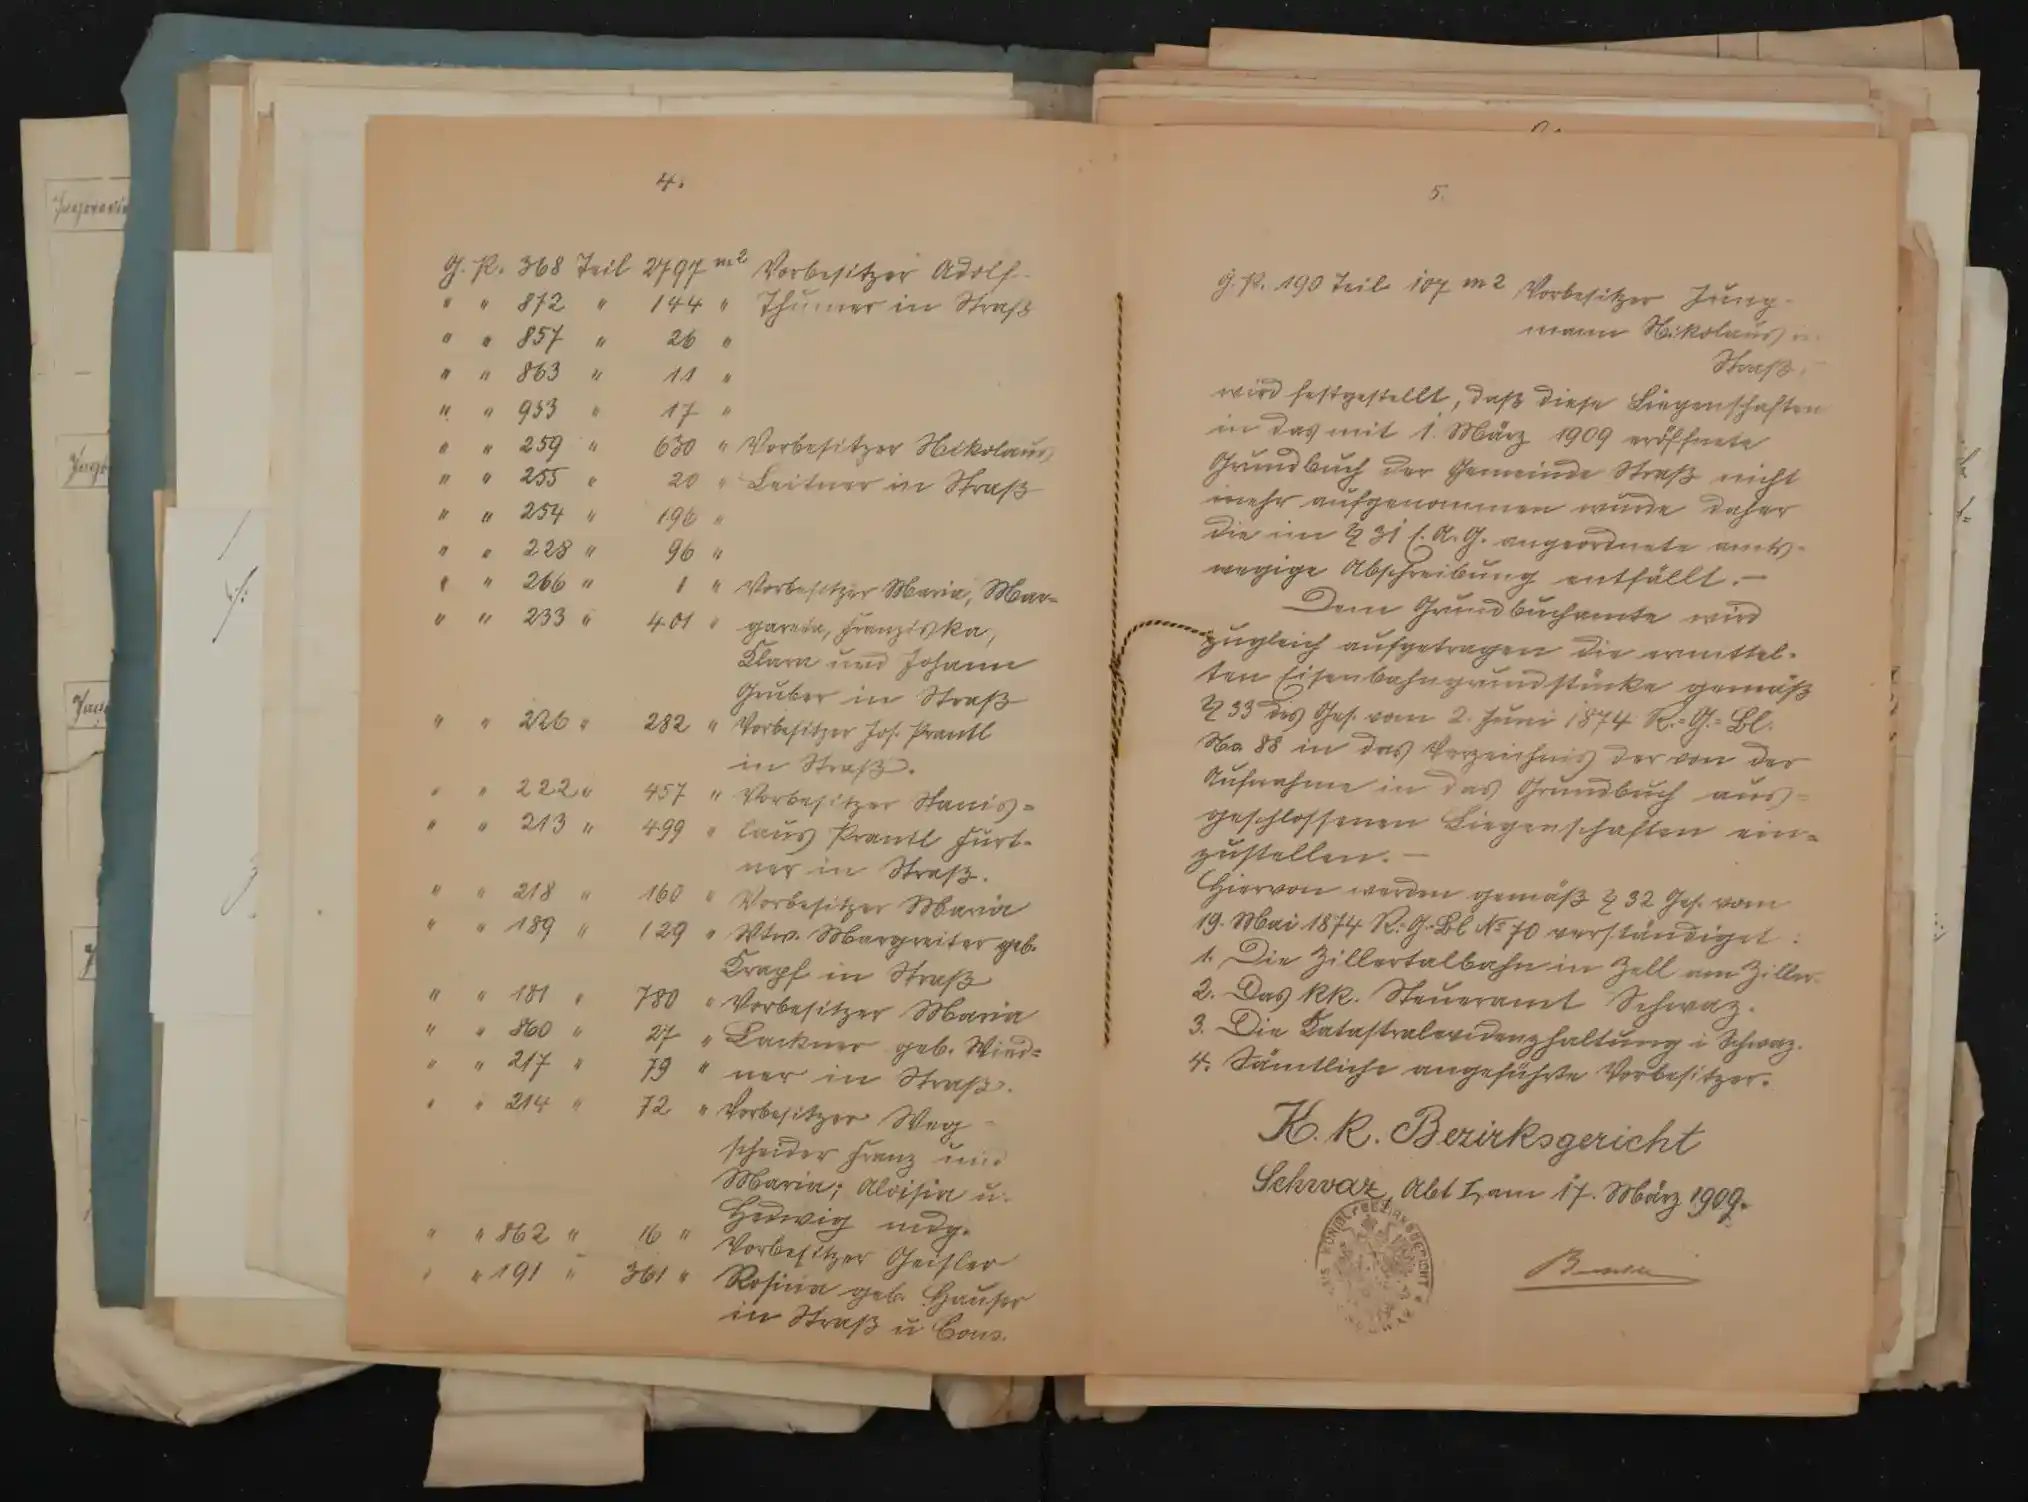 4.
G. P. 368 Teil 2797 m2 Vorbesitzer Adolf
" " 872 " 144 " Thumer in Straß
" " 857 " 26 "
" " 863 " 11 "
" " 953 " 17 "
" " 259 " 630 " Vorbesitzer Nikolaus
" " 255 " 20 " Leitner in Straß
" " 254 " 196 "
" " 228 " 96 "
" " 266 " 1 " Vorbesitzer Maria, Mar-
" " 233 " 401 " gareta, Franziska,
Klara und Johann
Gruber in Straß
" " 226 " 282 " Vorbesitzer Jos. Prantl
in Straß.
" " 222 " 457 " Vorbesitzer Stanis=
" " 213 " 499 " laus Prantl Furt-
ner in Straß.
" " 218 " 160 " Vorbesitzer Maria
" " 189 " 129 " Wtw. Margreiter geb.
Krapf in Straß
" " 181 " 780 " Vorbesitzer Maria
" " 860 " 27 " Lackner geb. Wied=
" " 217 " 79 " ner in Straß.
" " 214 " 72 " Vorbesitzer Weg-
scheider Franz und
Maria; Aloisia u.
Hedwig mdg.
" " 862 " 16 " Vorbesitzer Geisler
" " 191 " 361 " Rosina geb. Hauser
in Straß u Cons.
5.
G. P. 190 Teil 107 m2 Vorbesitzer Jung-
mann Nikolaus in
Straß,
wird festgestellt, daß diese Liegenschaften
in das mit 1. März 1909 eröffnete
Grundbuch der Gemeinde Straß nicht
mehr aufgenommen wurde daher
die im § 31 l. A. G. angeordnete amts-
wegige Abschreibung entfällt.—
Dem Grundbuchamte wird
zugleich aufgetragen die ermittel-
ten Eisenbahngrundstücke gemäß
§ 33 des Ges. vom 2. Juni 1874 R.=G.=Bl.
No 88 in das Verzeichnis der von der
Aufnahme in das Grundbuch aus=
geschlossenen Liegenschaften ein=
zustellen.—
Hiervon werden gemäß § 32 Ges. vom
19. Mai 1874 R.=G.=Bl No 70 verständiget:
1. Die Zillertalbahn in Zell am Ziller.
2. Das kk. Steueramt Schwaz.
3. Die Katastralevidenzhaltung i Schwaz.
4. Sämtliche angeführte Vorbesitzer.
K. k. Bezirksgericht
Schwaz, Abt I, am 17. März 1909.